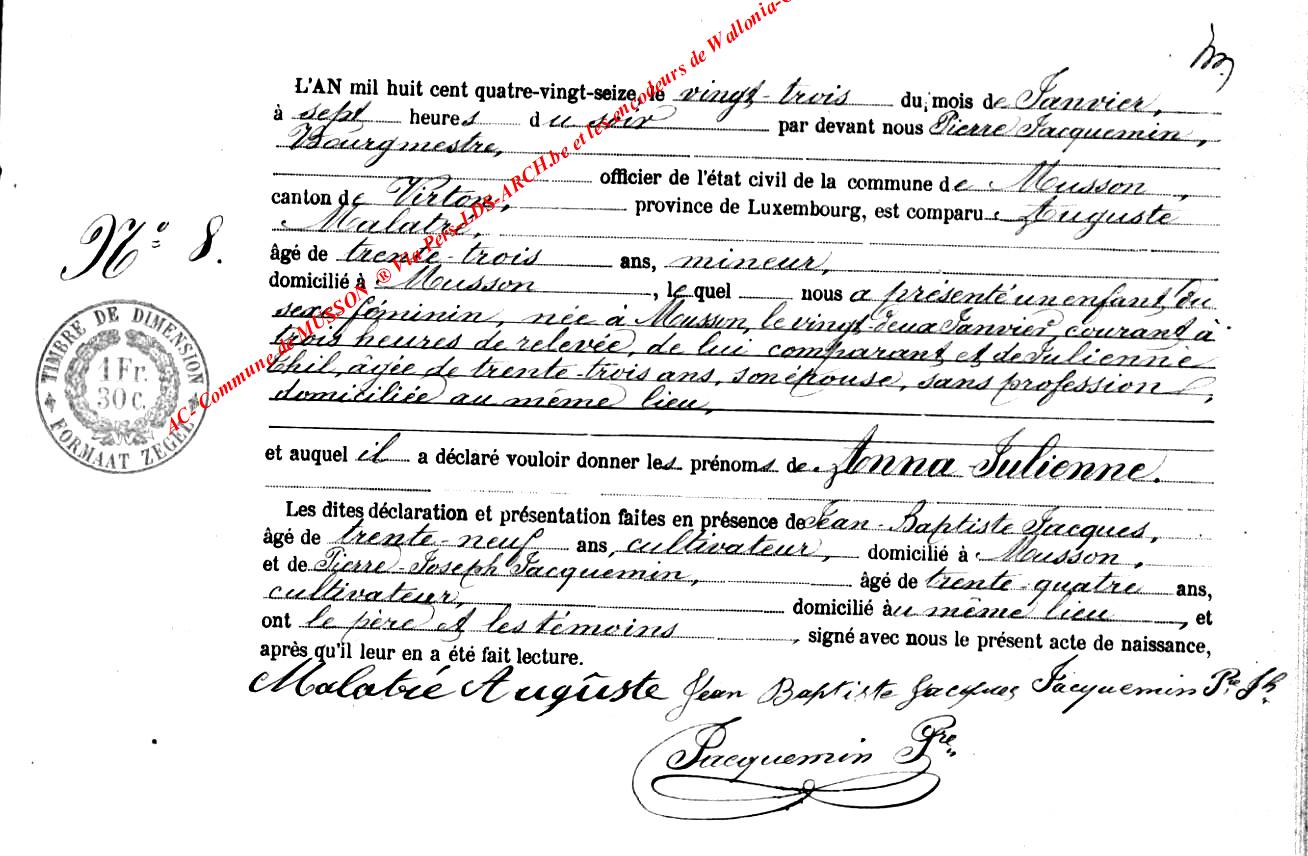 L'AN mil huit cent quatre-vingt-seize, le vingt-trois du mois de Janvier,
à sept heures du soir par devant nous Pierre Jacquemin,
Bourgmestre,
officier de l'état civil de la commune de Musson,
canton de Virton, province de Luxembourg, est comparu Auguste
Malatré,
âgé de trente-trois ans, mineur,
domicilié à Musson, lequel nous a présenté un enfant du
sexe féminin, née à Musson, le vingt-deux Janvier courant à
trois heures de relevée, de lui comparant et de Julienne
Thil, âgée de trente-trois ans, son épouse, sans profession,
domiciliée au même lieu,
et auquel il a déclaré vouloir donner les prénoms de Anna Julienne.
Les dites déclaration et présentation faites en présence de Jean-Baptiste Jacques,
âgé de trente-neuf ans, cultivateur, domicilié à Musson,
et de Pierre-Joseph Jacquemin, âgé de trente-quatre ans,
cultivateur, domicilié au même lieu, et
ont le père et les témoins, signé avec nous le présent acte de naissance,
après qu'il leur en a été fait lecture.
Malatré Auguste Jean Baptiste Jacques Jacquemin Pre Jh
Jacquemin Pre
No 8.
TIMBRE DE DIMENSION
1 Fr.
30 c.
FORMAAT ZEGEL
AC- Commune de MUSSON ® Via Pers-LDS-ARCH.be et les encodeurs de Wallonia-